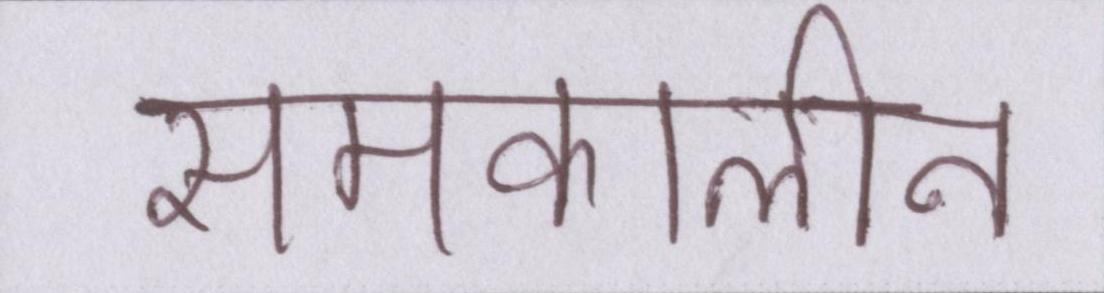 समकालीन